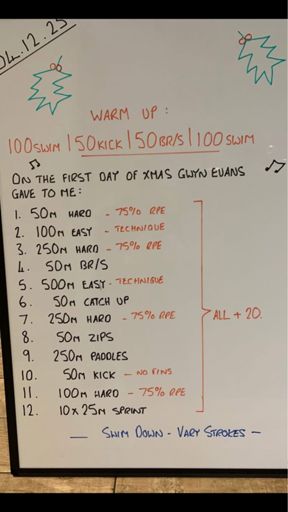 04.12.25
WARM UP :
100 SWIM | 50 KICK | 50 BR/S | 100 SWIM
ON THE FIRST DAY OF XMAS GWYN EVANS
GAVE TO ME :
1. 50M HARD - 75% RPE
2. 100M EASY - TECHNIQUE
3. 250M HARD - 75% RPE
4. 50M BR/S
5. 500M EASY - TECHNIQUE
6. 50M CATCH UP
7. 250M HARD - 75% RPE
8. 50M ZIPS
9. 250M PADDLES
10. 50M KICK - NO FINS
11. 100M HARD - 75% RPE
12. 10 x 25M SPRINT
ALL + 20.
— SWIM DOWN - VARY STROKES —